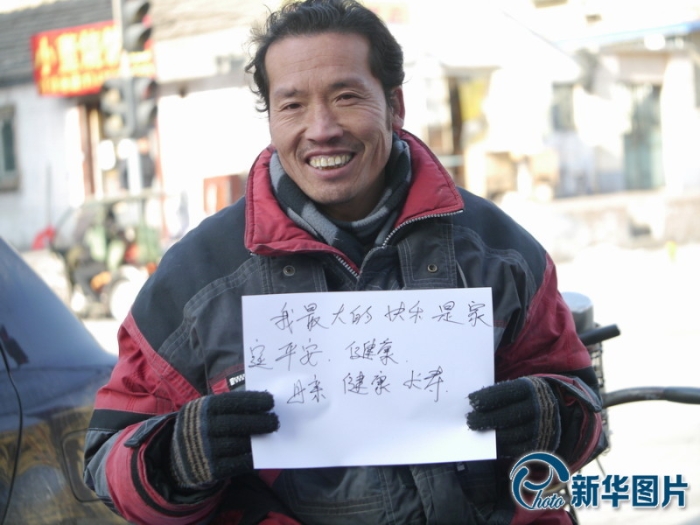 我最大的快乐是家
定平安．健康．
母亲 健康 长寿．
Photo 新华图片